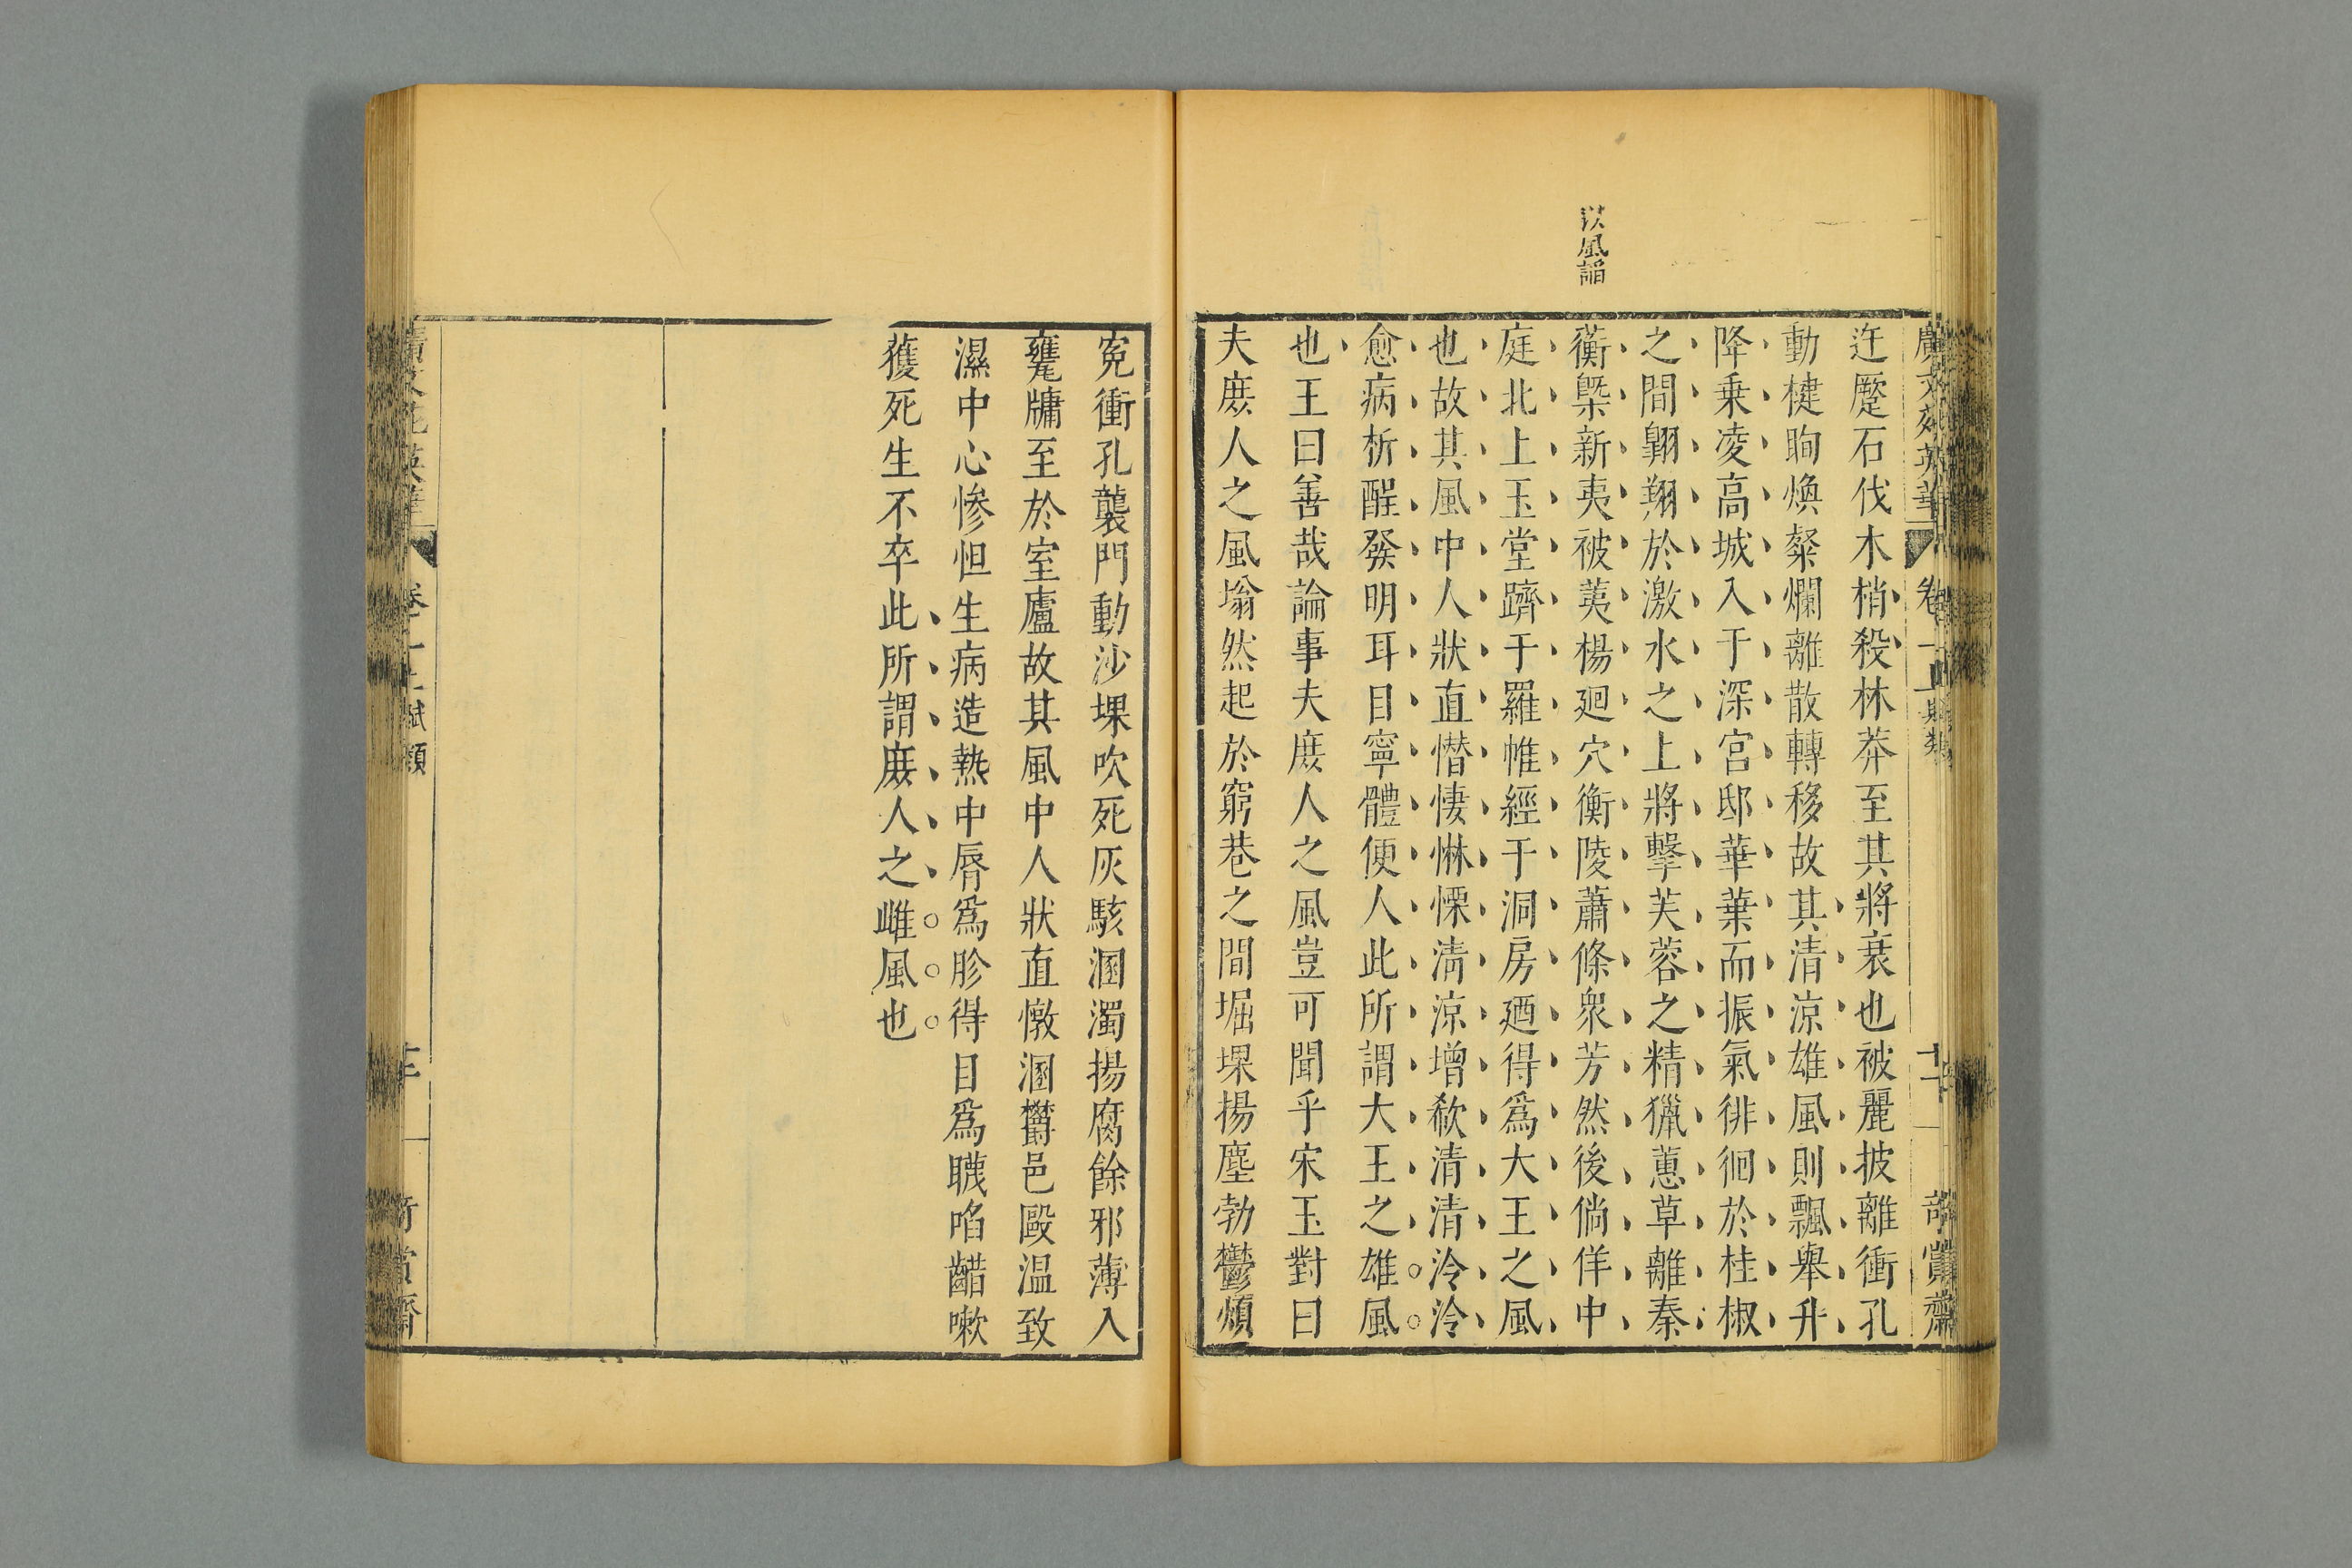 以風諂
迕蹷石伐木梢殺林莽至其將衰也被麗披離衝孔
動楗眴煥粲爛離散轉移故其清涼雄風則飄舉升
降乗凌高城入于深宮邸華葉而振氣徘徊於桂椒
之間翺翔於激水之上將擊芙蓉之精獵蕙草離秦
蘅槩新夷被荑楊廻穴衡陵蕭條衆芳然後倘佯中
庭北上玉堂躋于羅帷經于洞房廼得爲大王之風
也故其風中人狀直憯悽惏慄清涼增欷清清泠泠
愈病析酲發明耳目寧體便人此所謂大王之雄風
也王曰善哉論事夫庶人之風豈可聞乎宋玉對曰
夫庶人之風塕然起於窮巷之間堀堁揚塵勃鬱煩
寃衝孔襲門動沙堁吹死灰駭溷濁揚腐餘邪薄入
甕牖至於室廬故其風中人狀直憞溷鬱邑毆温致
濕中心慘怛生病造熱中脣爲胗得目爲䁾啗齰嗽
獲死生不卒此所謂庶人之雌風也